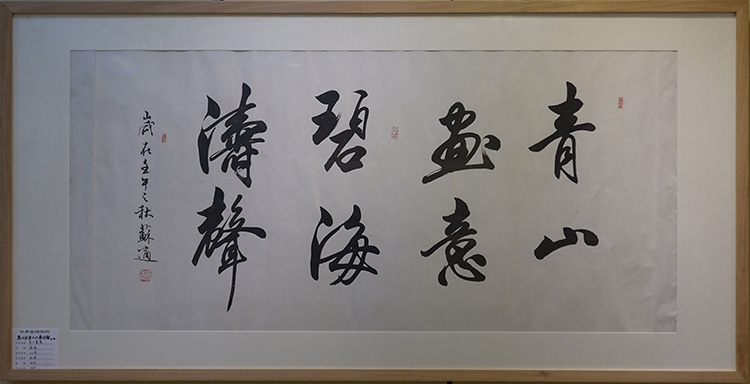 青山
畫意
碧海
濤聲
歲在壬午之秋蘇適